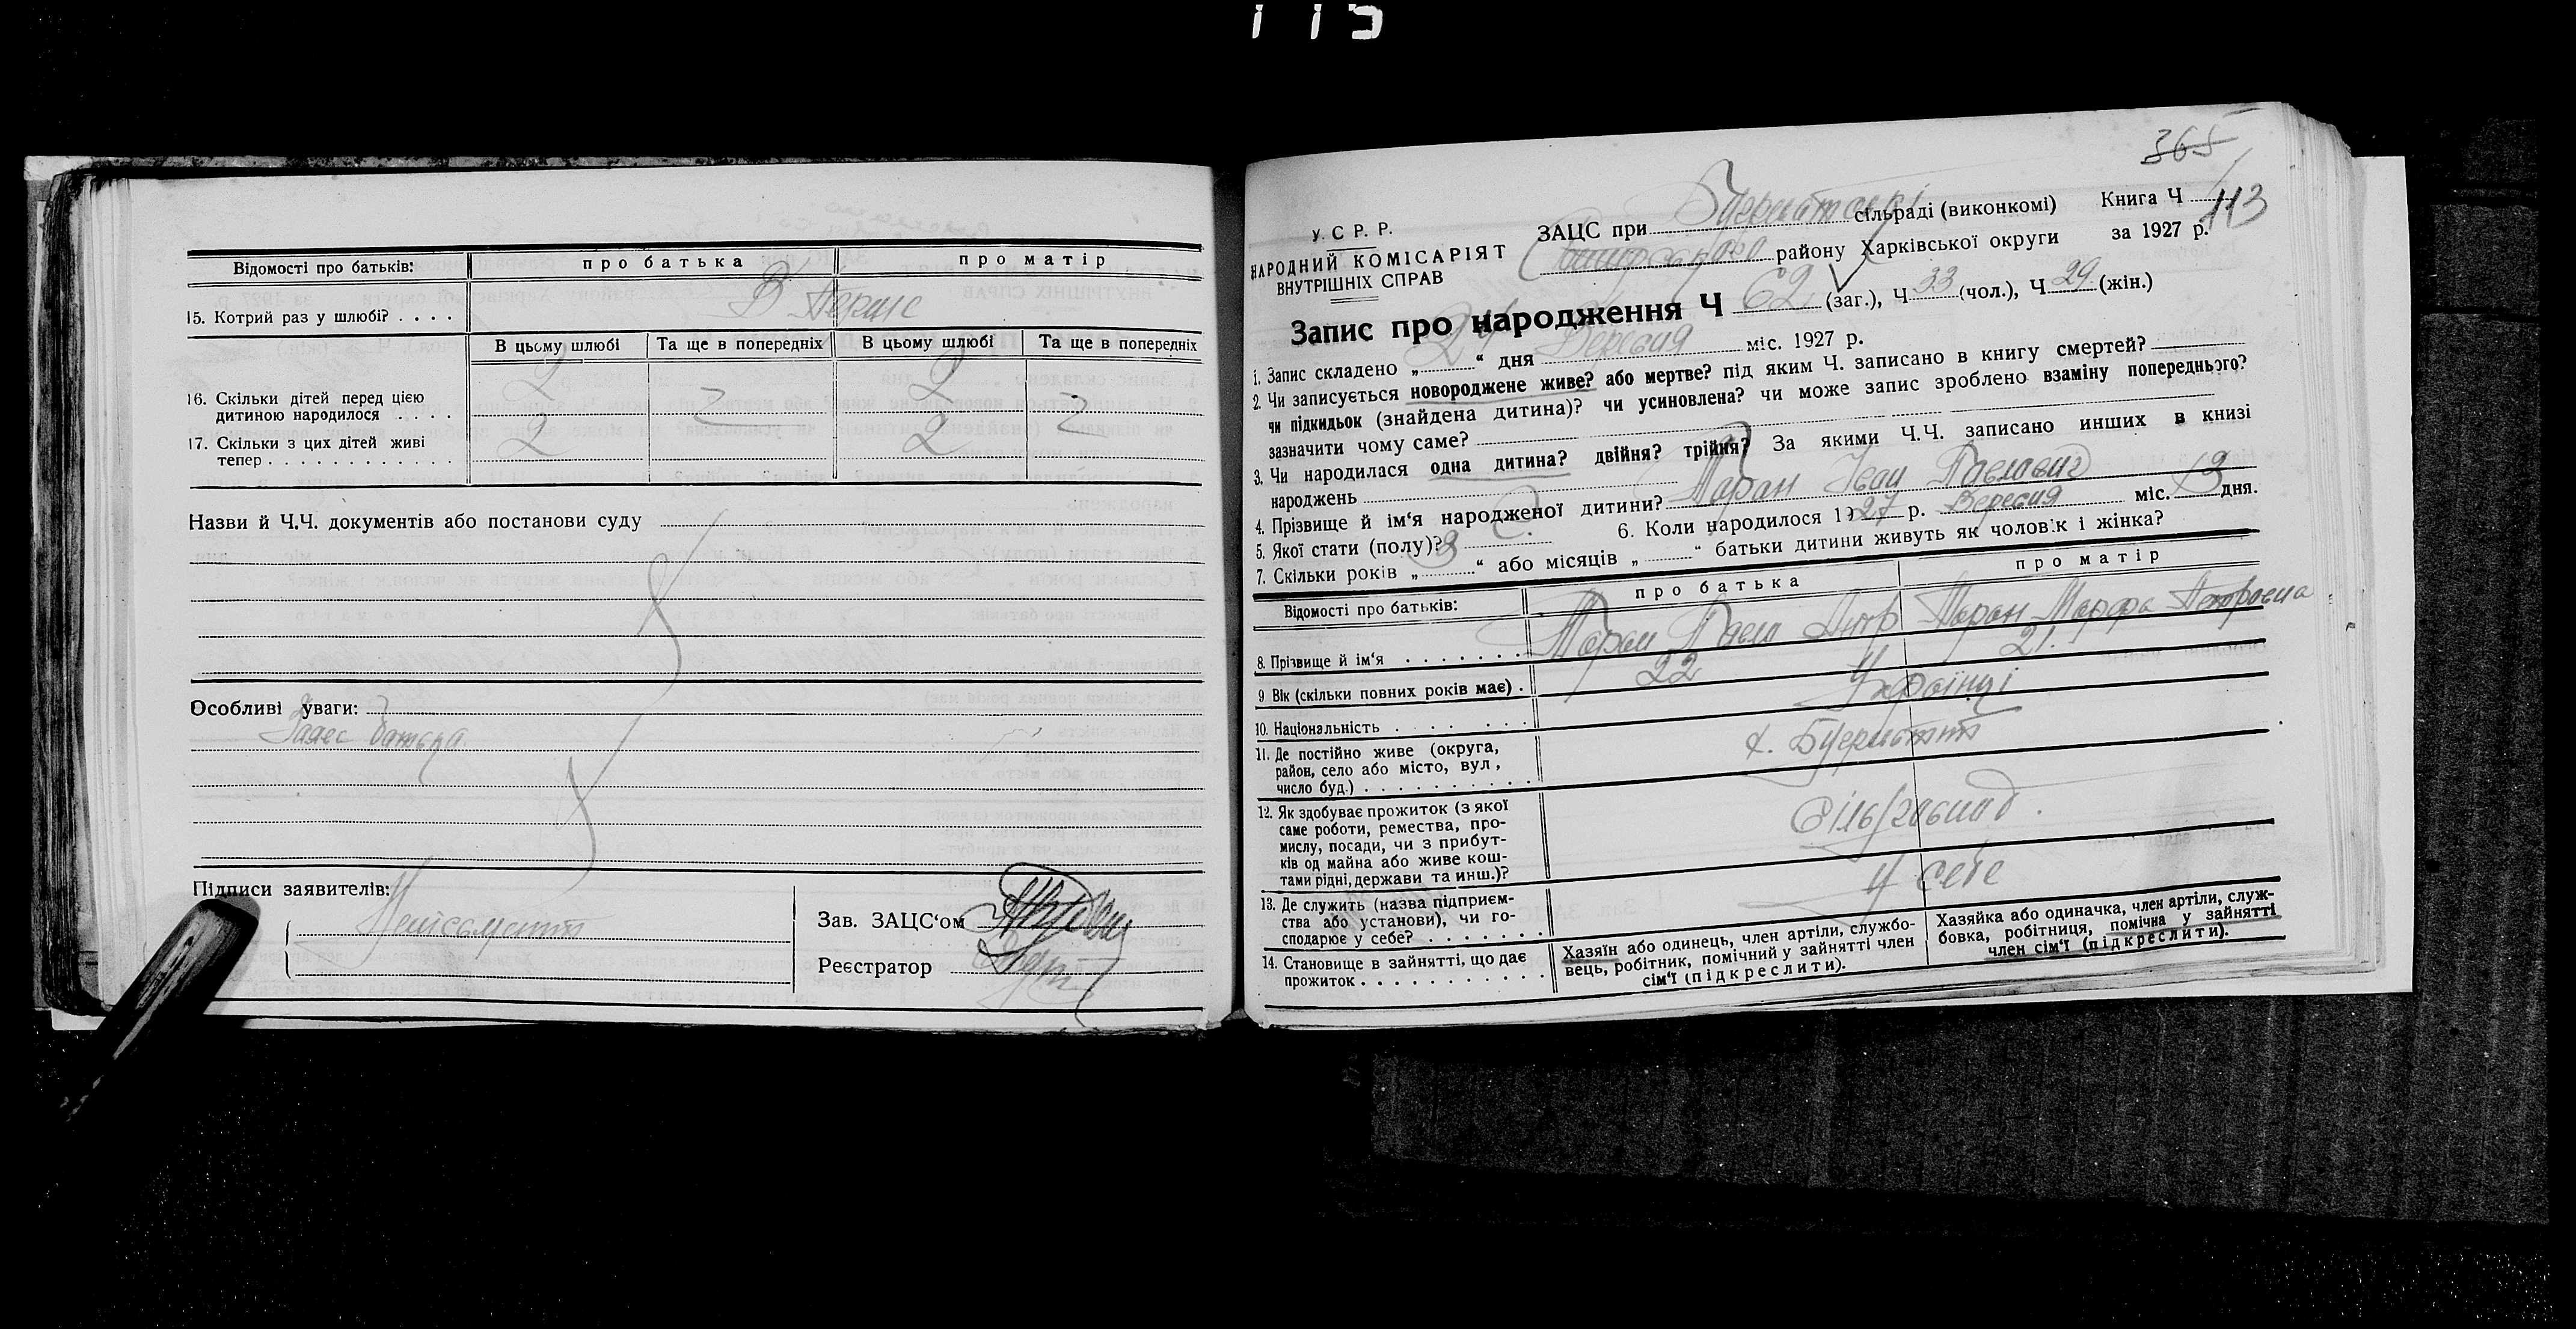 115
Відомості про батьків: про батька про матір
15. Котрий раз у шлюбі? . . . . В Перше
В цьому шлюбі Та ще в попередніх В цьому шлюбі Та ще в попередніх
16. Скільки дітей перед цією
дитиною народилося . . . . 2 2
17. Скільки з цих дітей живі
тепер . . . . . . . . . . . . 2 2
Назви й Ч.Ч. документів або постанови суду
Особливі уваги:
батька
Підписи заявителів:
Зав. ЗАЦС‘ом
Реєстратор
365
113
У. С Р. Р.
НАРОДНИЙ КОМІСАРІЯТ
ВНУТРІШНІХ СПРАВ
ЗАЦС при сільраді (виконкомі) Книга Ч
району Харківської округи за 1927 р.
Запис про народження Ч 62 (заг.), Ч 33 (чол.), Ч 29 (жін.)
1. Запис складено „ “ дня Вересня міс. 1927 р.
2. Чи записується новороджене живе? або мертве? під яким Ч. записано в книгу смертей?
чи підкидьок (знайдена дитина)? чи усиновлена? чи може запис зроблено взаміну попереднього?
зазначити чому саме?
3. Чи народилася одна дитина? двійня? трійня? За якими Ч.Ч. записано инших в книзі
народжень
4. Прізвище й ім‘я народженої дитини? Таран Іван Павлович
5. Якої стати (полу)? Ч. 6. Коли народилося 1927 р. Вересня міс. 13 дня.
7. Скільки років „3“ або місяців „ “ батьки дитини живуть як чоловік і жінка?
Відомості про батьків: про батька про матір
8. Прізвище й ім‘я . . . . . . . Таран Павло Дмтр Таран Марфа Петровна
9 Вік (скільки повних років має) . 22 21.
10. Національність . . . . . . . Українці
11. Де постійно живе (округа,
район, село або місто, вул,
число буд.) . . . . . . . . . . х.
12. Як здобуває прожиток (з якої
саме роботи, ремества, про-
мислу, посади, чи з прибут-
ків од майна або живе кош-
тами рідні, держави та инш.)?
13. Де служить (назва підприєм-
ства або установи), чи го-
сподарює у себе? . . . . . . . У себе
14. Становище в зайнятті, що дає
прожиток . . . . . . . . . .
Хазяїн або одинець, член артіли, службо-
вець, робітник, помічний у зайнятті член
сім‘ї (підкреслити).
Хазяйка або одиначка, член артіли, служ-
бовка, робітниця, помічна у зайнятті
член сім‘ї (підкреслити).